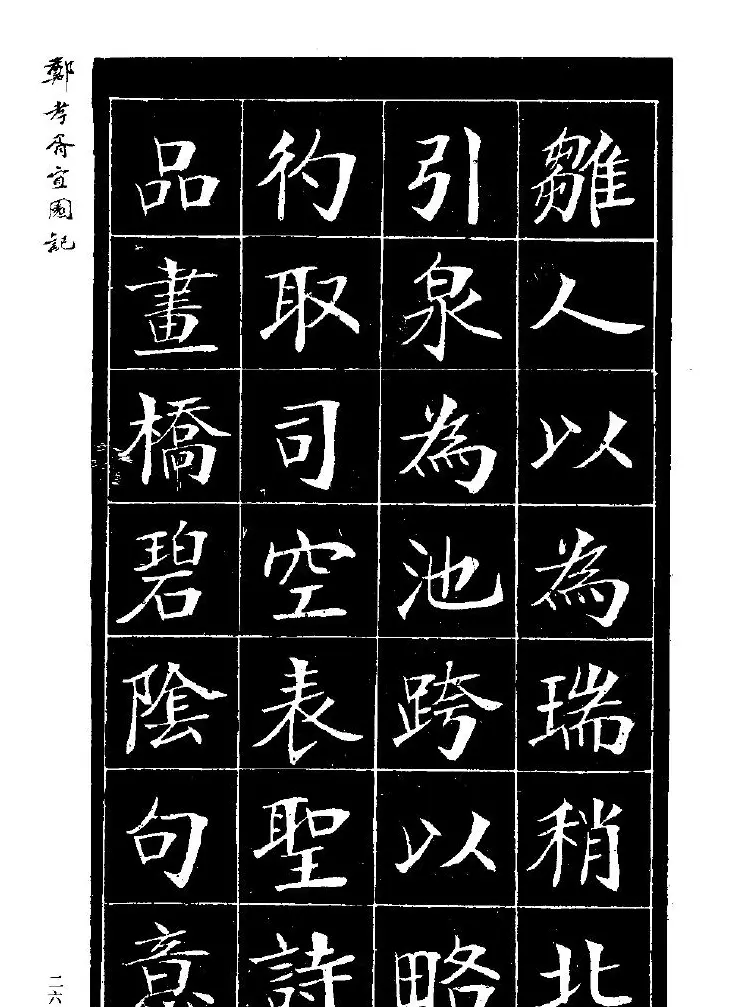 雛人以為瑞稍北
引泉為池跨以略
彴取司空表聖詩
品畫橋碧陰句意
鄭孝胥宜園記
二六